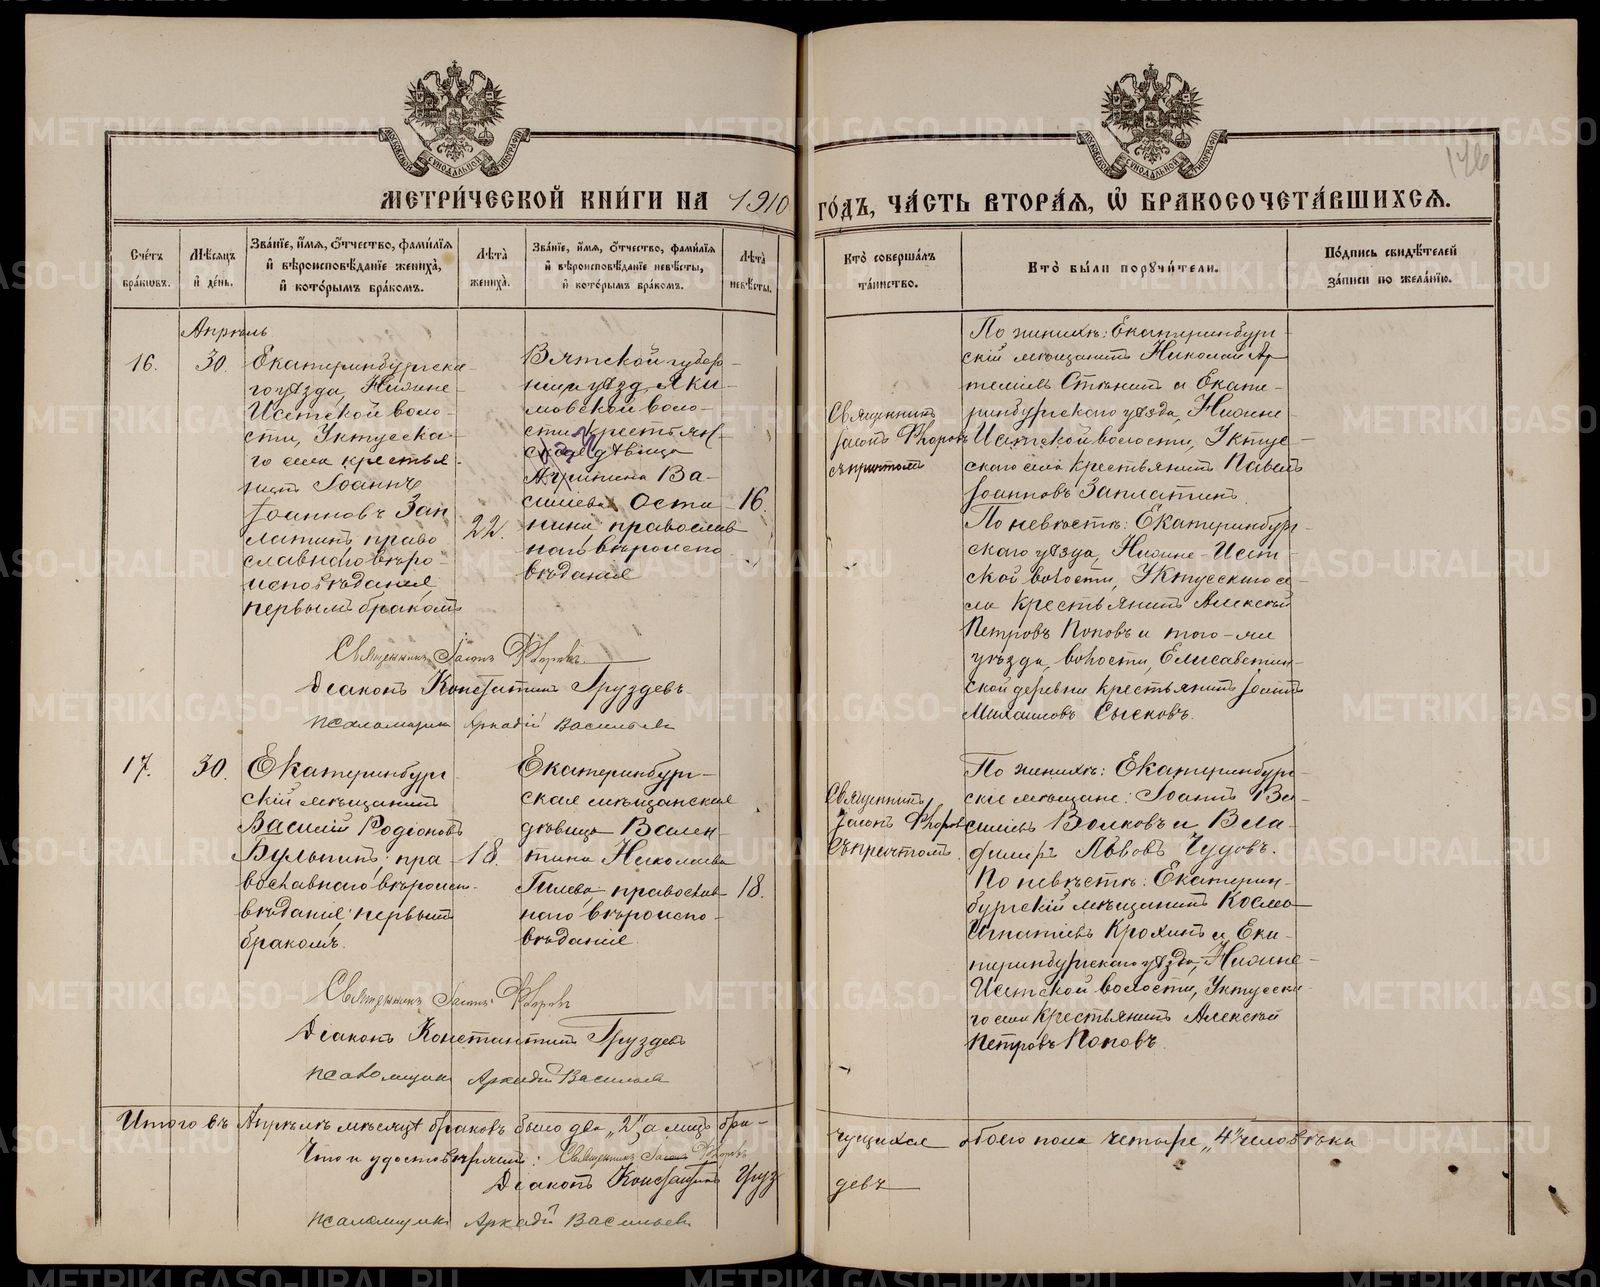 МЕТРИ́ЧЕСКОЙ КНИ́ГИ НА 1910
ГО́ДЪ, ЧА́СТЬ ВТОРА́Я, Ѽ БРАКОСОЧЕТА́ВШИХСЯ.
146
Сче́тъ бра́ковъ.
Мѣ́сяцъ и҆ де́нь.
Зва́нїе, и҆́мя, ѻ҆́тчество, фами́лїя и҆ вѣроисповѣ́данїе жениха̀, и҆ кото́рымъ бра́комъ.
Лѣ́та жениха̀.
Зва́нїе, и҆́мя, ѻ҆́тчество, фами́лїя и҆ вѣроисповѣ́данїе невѣ́сты, и҆ кото́рымъ бра́комъ.
Лѣ́та невѣ́сты.
Кто̀ соверша́лъ та́инство.
Кто̀ бы́ли порꙋчи́тели.
По́дпись свидѣ́телей за́писи по жела́нїю.
Апрѣль
16.
30.
Екатеринбургска
го уѣзда, Нижне-
Исетской воло-
сти, Уктусска-
го села крестья-
нинъ Іоаннъ
Іоанновъ Зап
латинъ право
славнаго вѣро-
исповѣданія,
первымъ бракомъ
22.
Вятской губер-
ніи уѣзд. Яки-
мовской воло-
сти крестьян-
ская дѣвица
Агрипина Ва-
сильева Оста
нина, православ
наго вѣроиспо-
вѣданія
16.
Священникъ
Іасонъ Флоровъ
съ причтомъ
По женихѣ: Екатеринбург-
скій мѣщанинъ Николай Ар
теміевъ Стѣнинъ и Екате-
ринбургскаго уѣзда, Нижне
Исетской волости, Уктус-
скаго села крестьянинъ Павелъ
Іоанновъ Заплатинъ.
По невѣстѣ: Екатеринбург-
скаго уѣзда, Нижне-Исет-
ской волости, Уктусскаго се-
ла крестьянинъ Алексѣй
Петровъ Поповъ и того-же
уѣзда, волости, Елисаветин-
ской деревни крестьянинъ Іоаннъ
Михаиловъ Сысковъ.
Священникъ Іасонъ Флоровъ.
Діаконъ Константинъ Груздевъ
псаломщикъ Аркадій Васильевъ
17.
30.
Екатеринбург
скій мѣщанинъ
Василій Родіоновъ
Булыгинъ; пра
вославнаго вѣроиспо-
вѣданія; первымъ
бракомъ.
18.
Екатеринбург-
ская мѣщанская
дѣвица Вален-
тина Николаева
Гилева православ-
наго вѣроиспо-
вѣданія.
18.
Священникъ
Іасонъ Флоровъ
съ причтомъ.
По женихѣ: Екатеринбург-
скіе мѣщане: Іоаннъ Ва
сильевъ Волковъ и Вла-
диміръ Львовъ Чудовъ.
По невѣстѣ: Екатерин-
бургскій мѣщанинъ Косма
Игнатіевъ Крохинъ и Ека-
теринбургскаго уѣзда, Нижне-
Исетской волости, Уктусска-
го села крестьянинъ Алексѣй
Петровъ Поповъ.
Священникъ Іасонъ Флоровъ
Діаконъ Константинъ Груздевъ
псаломщикъ Аркадій Васильевъ
Итого въ Апрѣлѣ мѣсяцѣ браковъ было два „2“, а лицъ бра-
чущихся обоего пола четыре „4“ человѣка
Что и удостовѣряемъ: Священникъ Іасонъ Флоровъ
Діаконъ Константинъ Груз
девъ
псаломщикъ Аркадій Васильевъ
METRIKI.GASO-URAL.RU